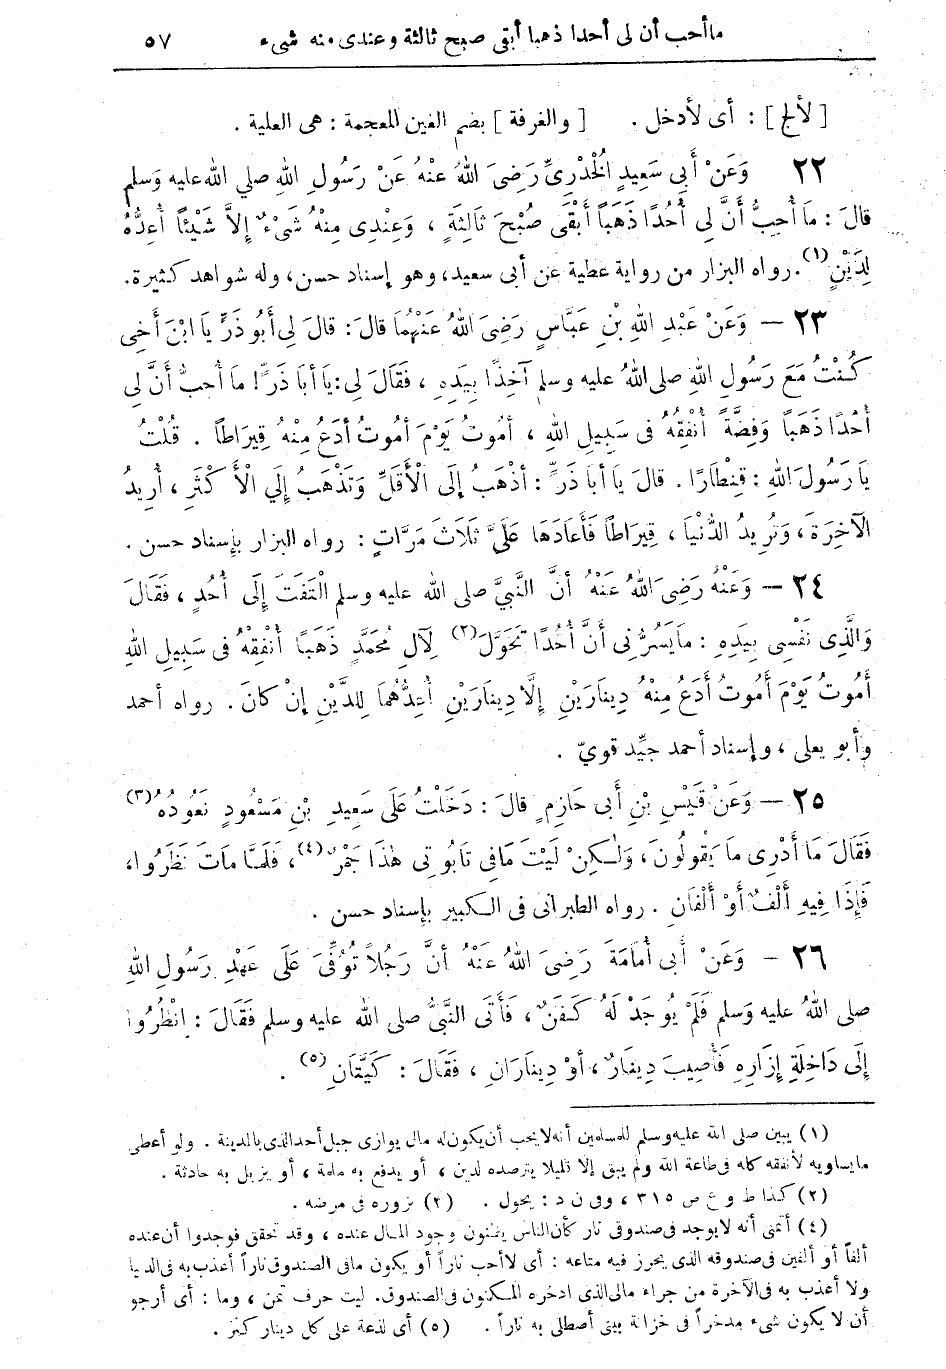 ما أحب أن لى أحدا ذهبا أبقى صبح ثالثة وعندى منه شىء ٥٧
[لألج] : أى لأدخل . [والغرفة] بضم الغين المعجمة : هى العلية .
٢٢ وَعَنْ أَبِى سَعِيدٍ الْخُدْرِىِّ رَضِىَ اللهُ عَنْهُ عَنْ رَسُولِ اللهِ صلي الله عليه وَسلم
قالَ : مَا أُحِبُّ أَنَّ لِى أُحُدًا ذَهَبًا أَبْقَى صُبْحَ ثَالِثَةٍ ، وَعِنْدِى مِنْهُ شَىْءٌ إِلاَّ شَيْئًا أُعِدُّهُ
لِدَيْنٍ (١) . رواه البزار من رواية عطية عن أبى سعيد، وهو إسناد حسن، وله شواهد كثيرة.
٢٣ — وَعَنْ عَبْدِ اللهِ بْنِ عَبَّاسٍ رَضِىَ اللهُ عَنْهُمَا قالَ : قالَ لِى أَبُو ذَرٍّ يَا ابْنَ أَخِى
كُنْتُ مَعَ رَسُولِ اللهِ صلى اللهُ عليه وسلم آخِذًا بِيَدِهِ ، فَقَالَ لِى : يَا أَبَا ذَرٍّ! مَا أُحِبُّ أَنَّ لِى
أُحُدًا ذَهَبًا وَفِضَّةً أُنْفِقُهُ فى سَبِيلِ اللهِ ، أَمُوتُ يَوْمَ أَمُوتُ أَدَعُ مِنْهُ قِيرَاطًا . قُلْتُ
يَا رَسُولَ اللهِ : قِنْطَارًا . قالَ يَا أَبا ذَرٍّ : أَذْهَبُ إِلَى الْأَقَلِّ وَتَذْهَبُ إِلَي الْأَكْثَرِ ، أُرِيدُ
الآخِرَةَ ، وَتُرِيدُ الدُّنْيَا ، قِيرَاطًا فَأَعَادَهَا عَلَىَّ ثَلَاثَ مَرَّاتٍ : رواه البزار بإسناد حسن .
٢٤ — وَعَنْهُ رَضِىَ اللهُ عَنْهُ أَنَّ النَّبِىَّ صلى الله عليه وسلم الْتَفَتَ إِلَى أُحُدٍ ، فَقَالَ
وَالَّذِى نَفْسِى بِيَدِهِ : مَا يَسُرُّنِى أَنَّ أُحُدًا تَحَوَّلَ (٢) لِآلِ مُحَمَّدٍ ذَهَبًا أُنْفِقُهُ فى سَبِيلِ اللهِ
أَمُوتُ يَوْمَ أَمُوتُ أَدَعُ مِنْهُ دِينَارَيْنِ إِلَّا دِينَارَيْنِ أُعِدُّهُمَا لِلدَّيْنِ إِنْ كانَ . رواه أحمد
وأبو يعلى ، وإسناد أحمد جيِّد قوىّ .
٢٥ — وَعَنْ قَيْسِ بْنِ أَبِى حَازِمٍ قالَ : دَخَلْتُ عَلَى سَعِيدِ بْنِ مَسْعُودٍ نَعُودُهُ (٣)
فَقَالَ مَا أَدْرِى مَا يَقُولُونَ ، وَلٰكِنْ لَيْتَ مَا فِى تَابُوتِى هٰذَا جَمْرٌ (٤) ، فَلَمَّا مَاتَ نَظَرُوا،
فَإِذَا فِيهِ أَلْفٌ أَوْ أَلْفَانِ . رواه الطبرانى فى الكبير بإسناد حسن .
٢٦ - وَعَنْ أَبِى أُمَامَةَ رَضِىَ اللهُ عَنْهُ أَنَّ رَجُلاً تُوُفِّىَ عَلَى عَهْدِ رَسُولِ اللهِ
صلى اللهُ عليه وَسلم فَلَمْ يُوجَدْ لَهُ كَفَنٌ ، فَأَتَى النَّبِىُّ صلى الله عليه وسلم فَقَالَ : انْظُرُوا
إِلَى دَاخِلَةِ إِزَارِهِ فَأُصِيبَ دِينَارٌ ، أَوْ دِينَارَانِ ، فَقَالَ : كَيَّتَانِ (٥) .
(١) يبين صلى الله عليه وسلم للمسلمين أنه لايحب أن يكون له مال يوازى جبل أحد الذى بالمدينة . ولو أعطى
مايساويه لأنفقه كله فى طاعة الله ولم يبق إلا قليلا يترصده لدين ، أو يدفع به ملمة ، أو يزيل به حادثة .
(٢) كذا ط و ع ص ٣١٥ ، وفى ن د : يحول . (٣) نزوره فى مرضه .
(٤) أتمنى أنه لايوجد فى صندوقى نار كأن الناس يظنون وجود المال عنده ، وقد تحقق فوجدوا أن عنده
ألفا أو ألفين فى صندوقه الذى يحرز فيه متاعه : أى لاأحب ناراً أو يكون مافى الصندوق ناراً أعذب به فى الدنيا
ولا أعذب به فى الآخرة من جراء مالى الذى ادخره المكنون فى الصندوق. ليت حرف تمن ، وما : أى أرجو
أن لا يكون شىء مدخراً فى خزانة بيتى أصطلى به ناراً . (٥) أى لذعة على كل دينار كنز .